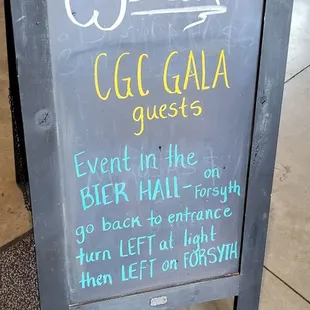 CGC GALA
guests
Event in the
BIER HALL - on
Forsyth
go back to entrance
turn LEFT at light
then LEFT on FORSYTH